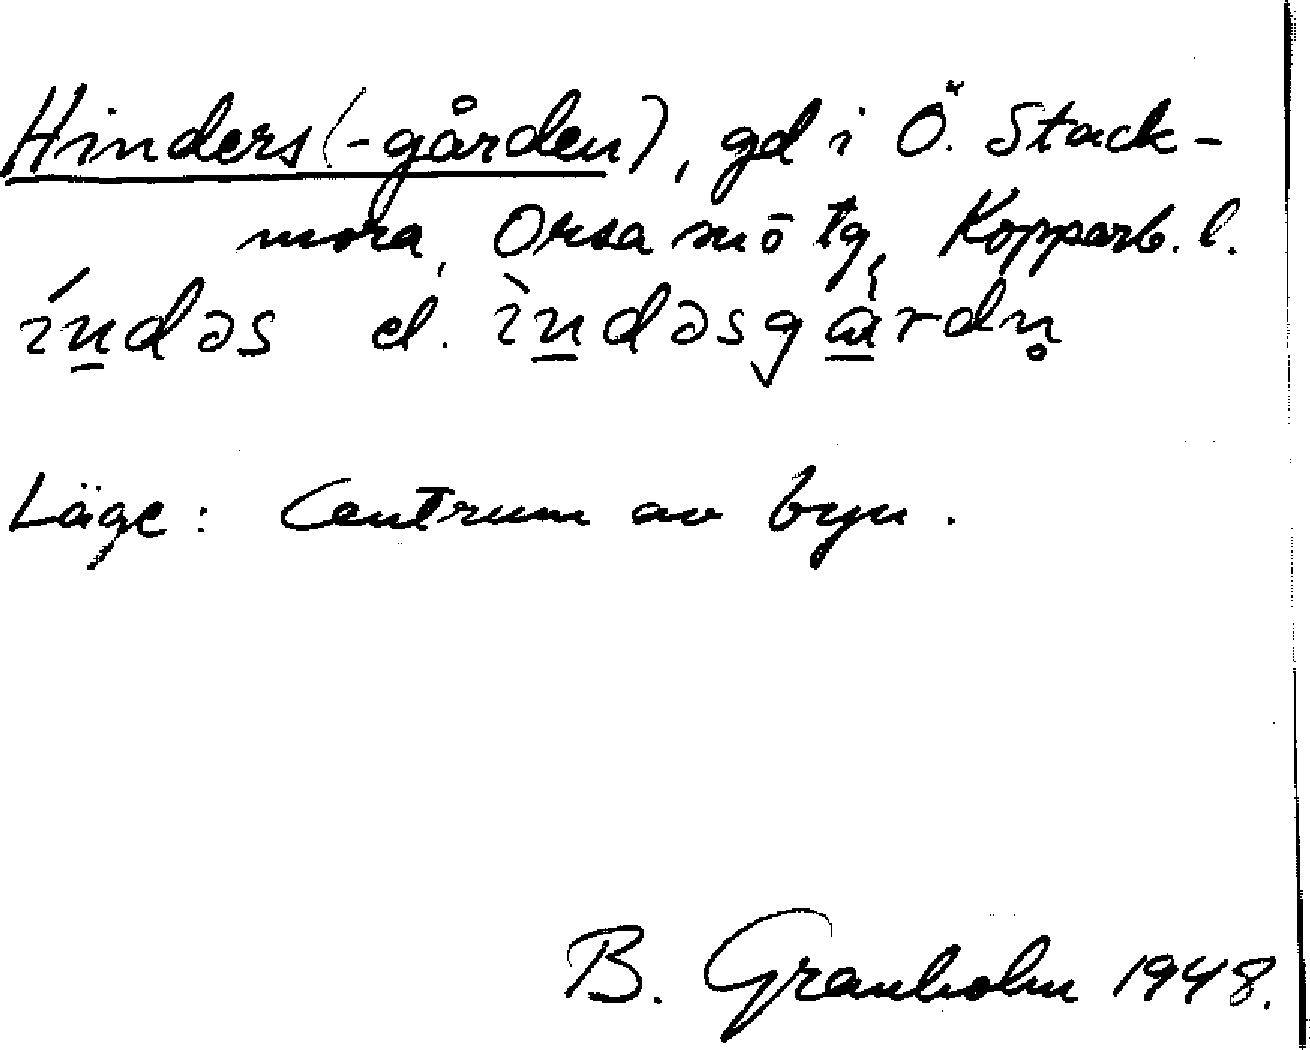 Hinders (-gården), gd i Ö. Stack-
mora, Orsa sn ö tg, Kopparb. l.
índəs el. ìndəsgårdn̥
Läge: Centrum av byn.
B. Granholm 1948.